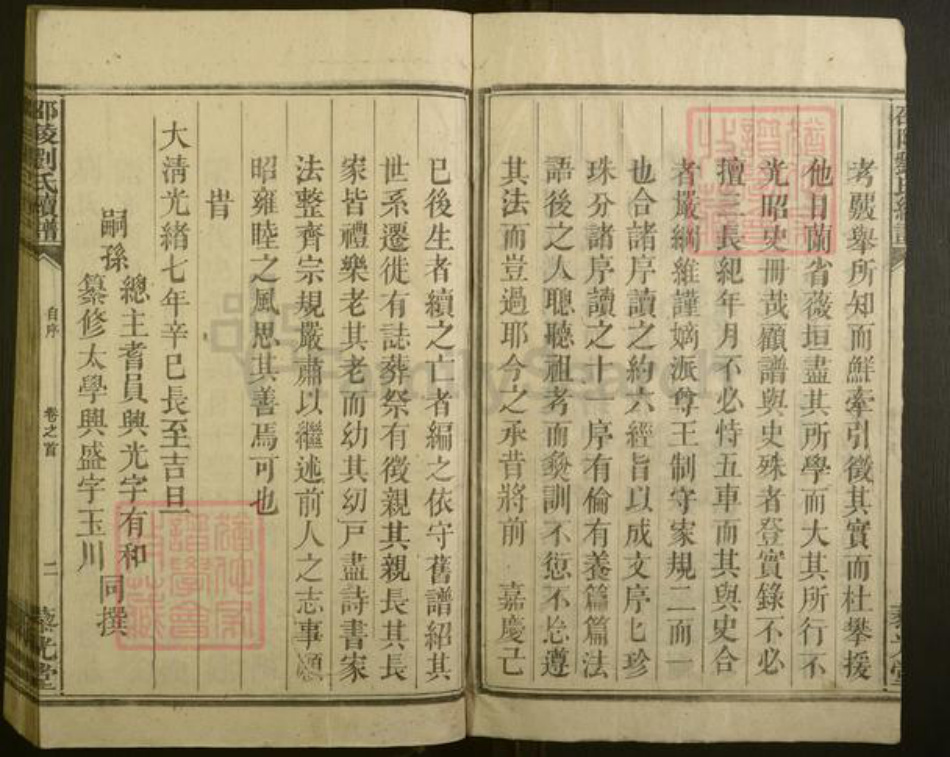 考覈舉所知而鮮牽引徵其實而杜攀援
他日蘭省薇垣盡其所學而大其所行不
光昭史冊哉顧譜與史殊者登實錄不必
擅三長紀年月不必恃五車而其與史合
者嚴綱維謹嫡派尊王制守家規二而一
也合諸序讀之約六經旨以成文序七珍
珠分諸序讀之十一序有倫有養篇篇法
語後之人聰聽祖考而彝訓不愆不忘遵
其法而豈過耶今之承昔將前 嘉慶己
巳後生者續之亡者編之依守舊譜紹其
世系遷徙有誌葬祭有徵親其親長其長
家皆禮樂老其老而幼其幼戸盡詩書家
法整齊宗規嚴肅以繼述前人之志事願
昭雍睦之風思其善焉可也
旹
大清光緒七年辛巳長至吉旦
嗣孫
總主耆員興光字有和
纂修太學興盛字玉川
同撰
邵陵劉氏續譜
自序
卷之首
二
藜光堂
FamilySearch